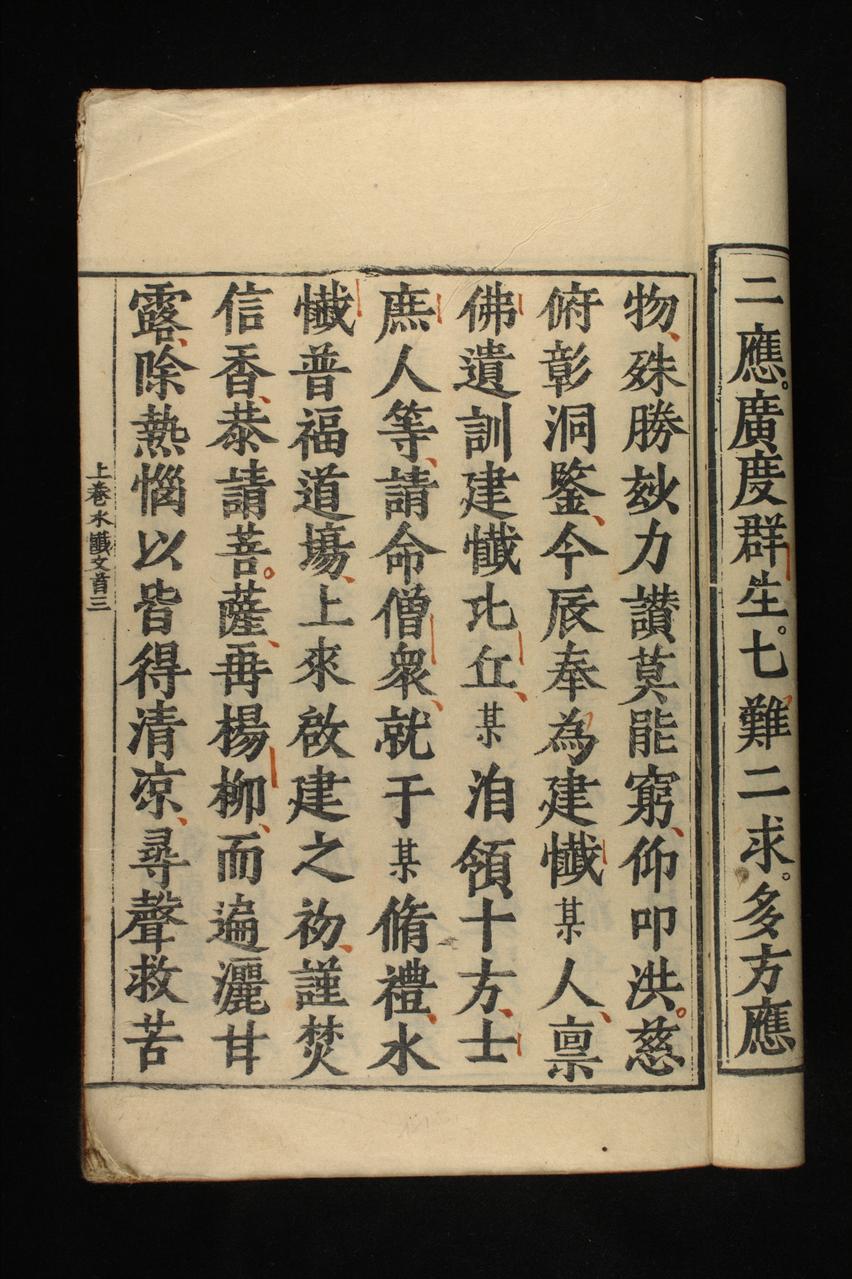 二應。廣度群生。七難二求。多方應
物、殊勝玅力讃莫能窮、仰叩洪。慈
俯彰洞鑒、今辰奉為建懺某人、禀
佛遺訓建懺比丘、某洎領十方、士
庶人等、請命僧衆、就于某脩禮、水
懺普福道塲、上來啟建之初、謹焚
信香、恭請菩。薩、再楊柳、而遍灑甘
露、除熱惱以皆得清凉、尋聲救苦
上卷水懺文首三